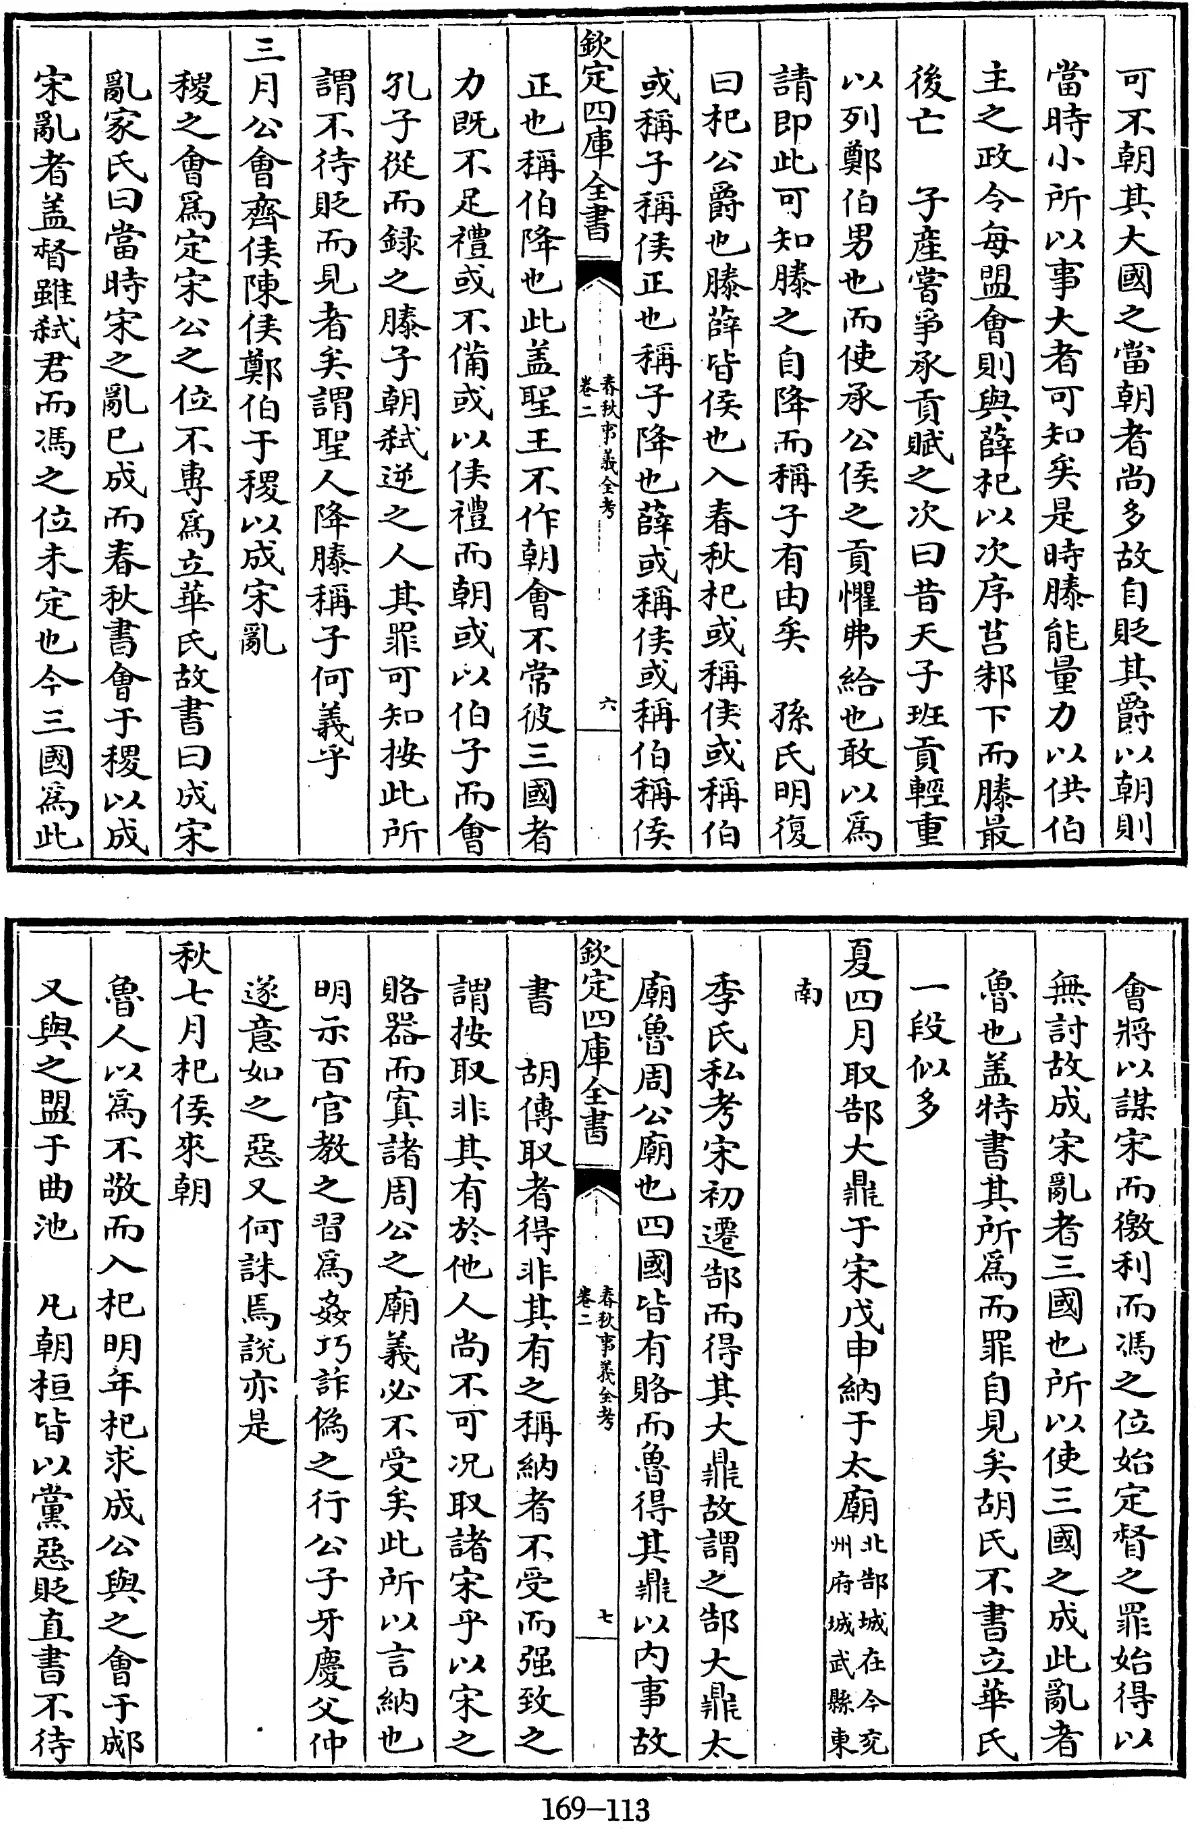 可不朝其大國之當朝者尚多故自貶其爵以朝則
當時小所以事大者可知矣是時滕能量力以供伯
主之政令每盟會則與薛杞以次序莒邾下而滕最
後亡　子産嘗爭承貢賦之次曰昔天子班貢輕重
以列鄭伯男也而使承公侯之貢懼弗給也敢以爲
請即此可知滕之自降而稱子有由矣　孫氏明復
曰杞公爵也滕薛皆侯也入春秋杞或稱侯或稱伯
或稱子稱侯正也稱子降也薛或稱侯或稱伯稱侯
欽定四庫全書
春秋事義全考
卷二
六
正也稱伯降也此蓋聖王不作朝會不常彼三國者
力既不足禮或不備或以侯禮而朝或以伯子而會
孔子從而録之滕子朝弑逆之人其罪可知按此所
謂不待貶而見者矣謂聖人降滕稱子何義乎
三月公會齊侯陳侯鄭伯于稷以成宋亂
稷之會爲定宋公之位不專爲立華氏故書曰成宋
亂家氏曰當時宋之亂已成而春秋書會于稷以成
宋亂者蓋督雖弑君而馮之位未定也今三國爲此
會將以謀宋而徼利而馮之位始定督之罪始得以
無討故成宋亂者三國也所以使三國之成此亂者
魯也蓋特書其所爲而罪自見矣胡氏不書立華氏
一段似多
夏四月取郜大鼎于宋戊申納于太廟北郜城在今兖
州府城武縣東
南
季氏私考宋初遷郜而得其大鼎故謂之郜大鼎太
廟魯周公廟也四國皆有賂而魯得其鼎以内事故
欽定四庫全書
春秋事義全考
卷二
七
書　胡傳取者得非其有之稱納者不受而强致之
謂按取非其有於他人尚不可况取諸宋乎以宋之
賂器而寘諸周公之廟義必不受矣此所以言納也
明示百官教之習爲姦巧詐偽之行公子牙慶父仲
遂意如之惡又何誅焉說亦是
秋七月杞侯來朝
魯人以爲不敬而入杞明年杞求成公與之會于郕
又與之盟于曲池　凡朝桓皆以黨惡貶直書不待
169-113